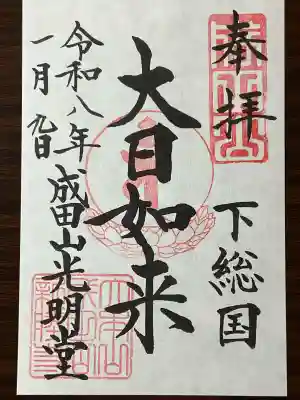 奉拝
下総国
大日如来
令和八年
一月九日
成田山光明堂